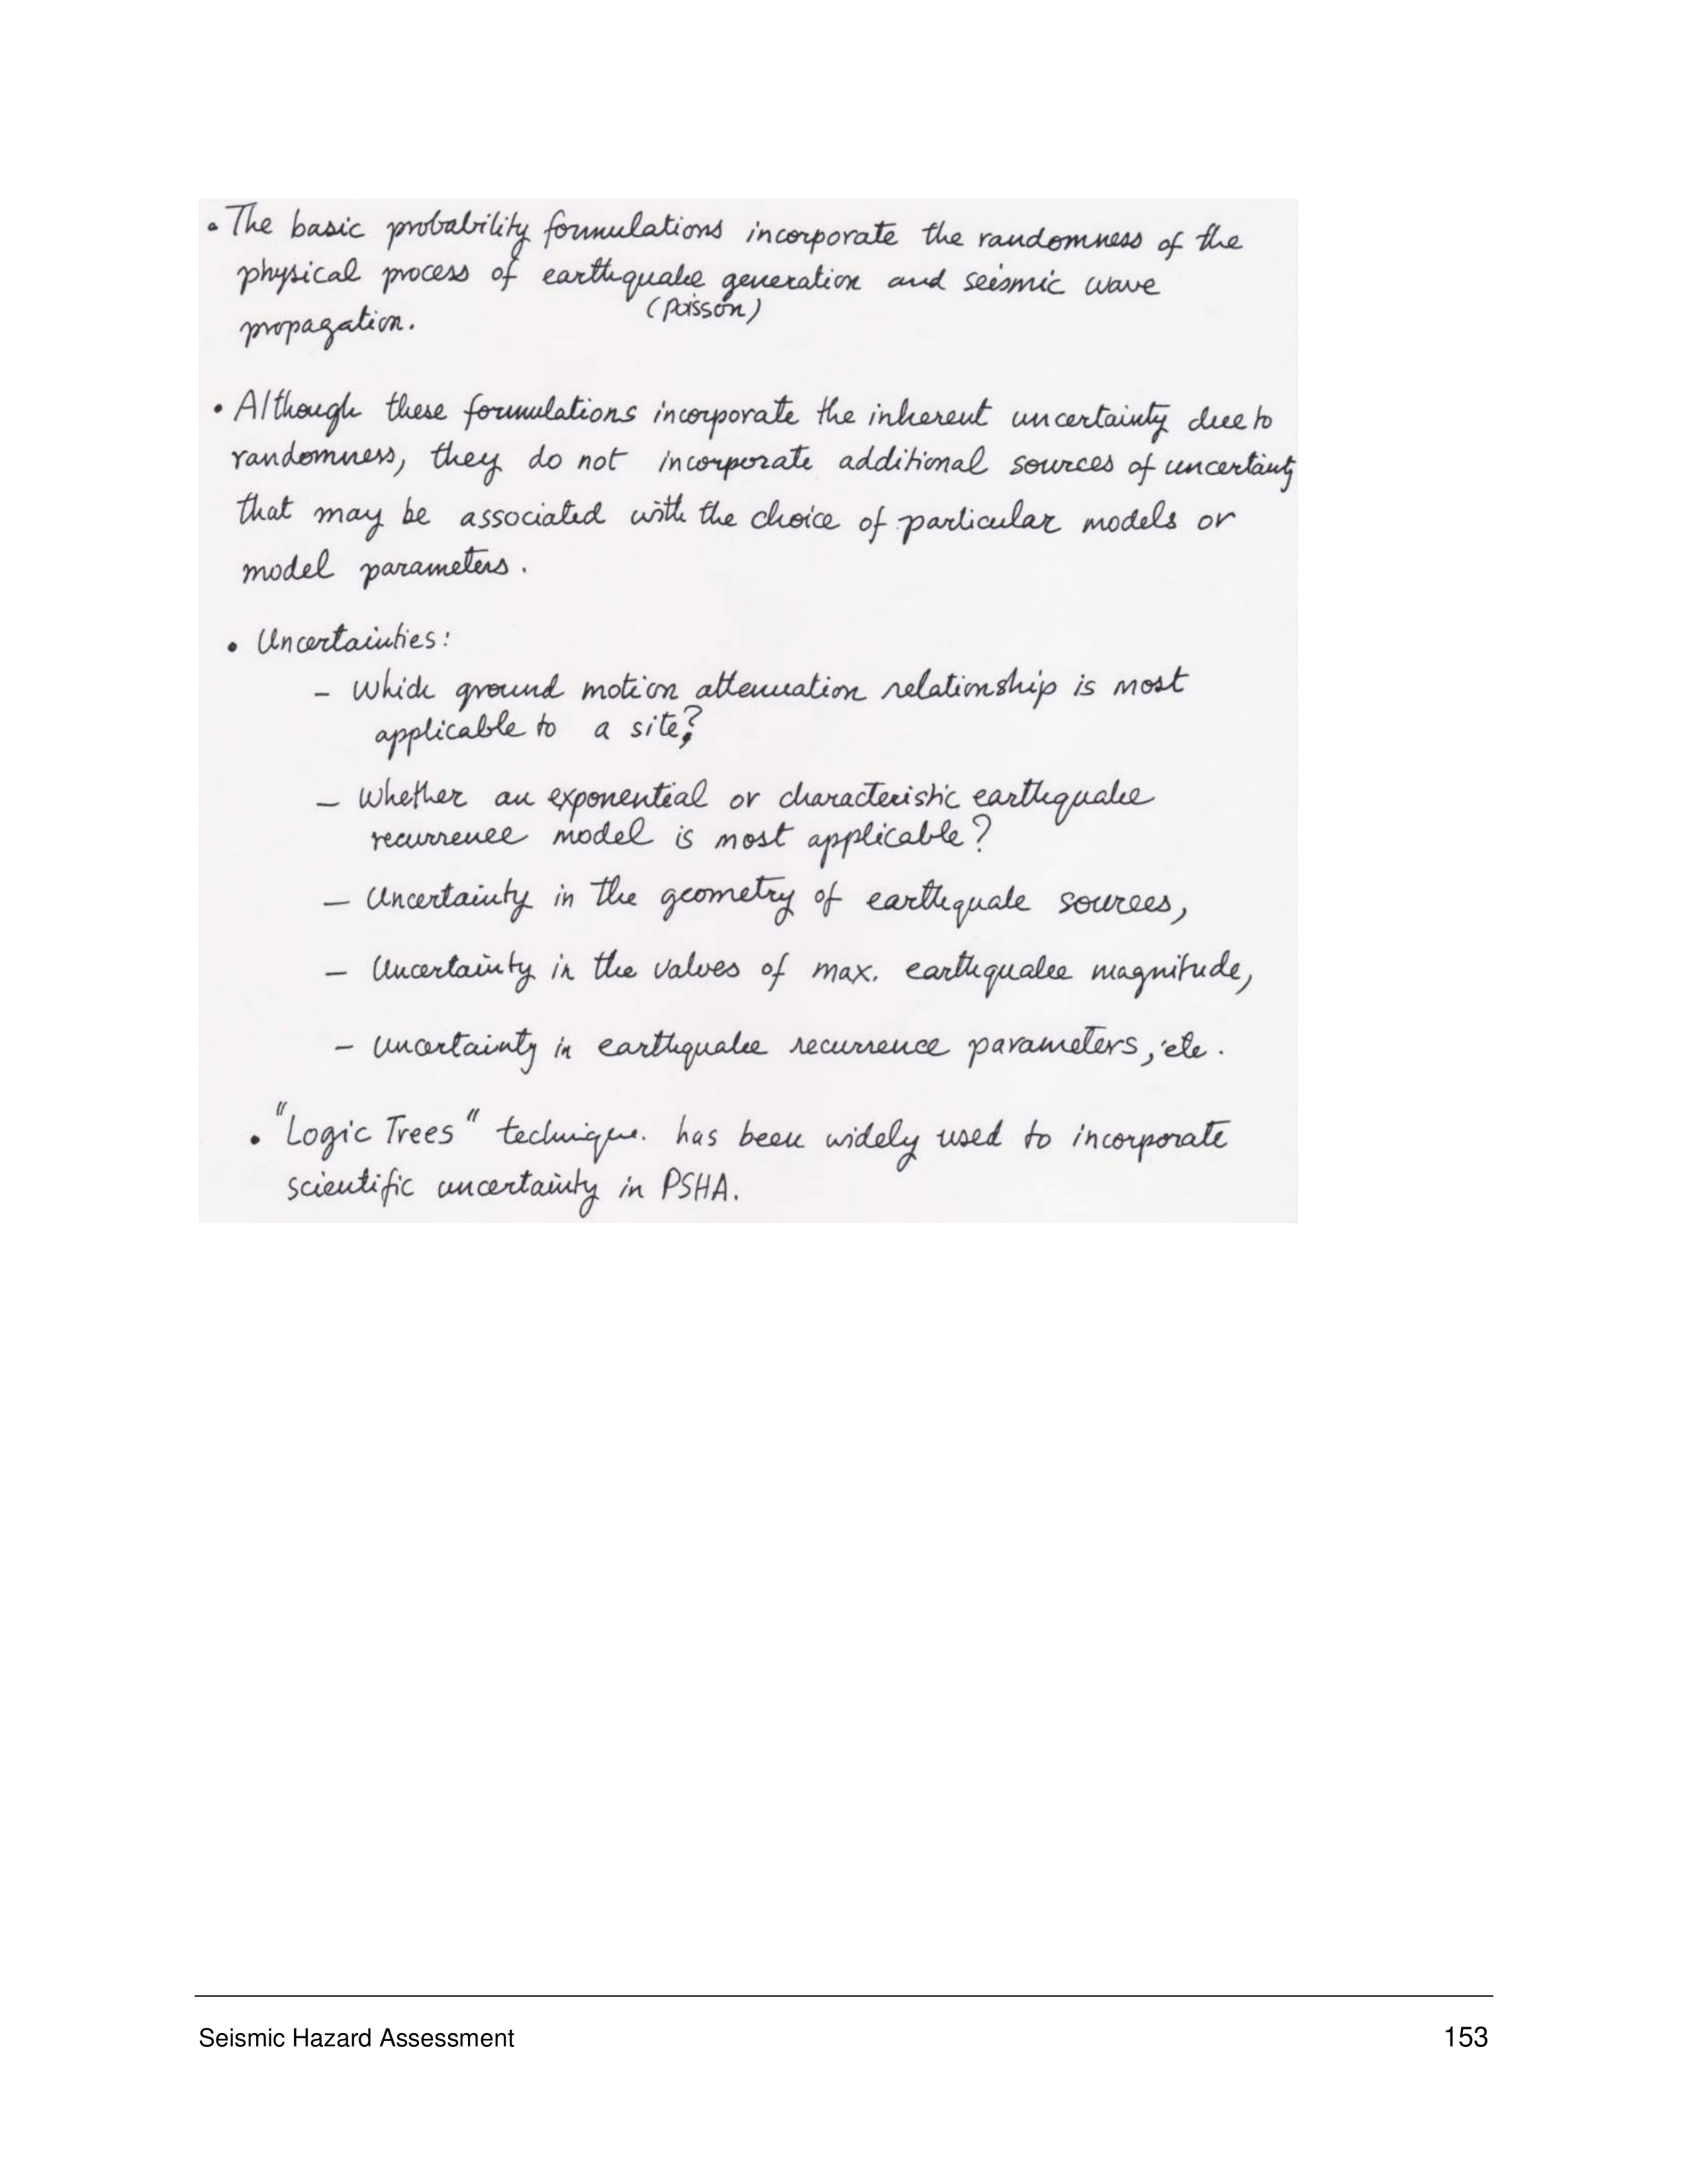 • The basic probability formulations incorporate the randomness of the
physical process of earthquake generation and seismic wave
(Poisson)
propagation.
• Although these formulations incorporate the inherent uncertainty due to
randomness, they do not incorporate additional sources of uncertainty
that may be associated with the choice of particular models or
model parameters.
• Uncertainties:
– Which ground motion attenuation relationship is most
applicable to a site?
– Whether an exponential or characteristic earthquake
recurrence model is most applicable?
– Uncertainty in the geometry of earthquake sources,
– Uncertainty in the values of max. earthquake magnitude,
– Uncertainty in earthquake recurrence parameters, etc.
• "Logic Trees" technique. has been widely used to incorporate
scientific uncertainty in PSHA.
Seismic Hazard Assessment 153